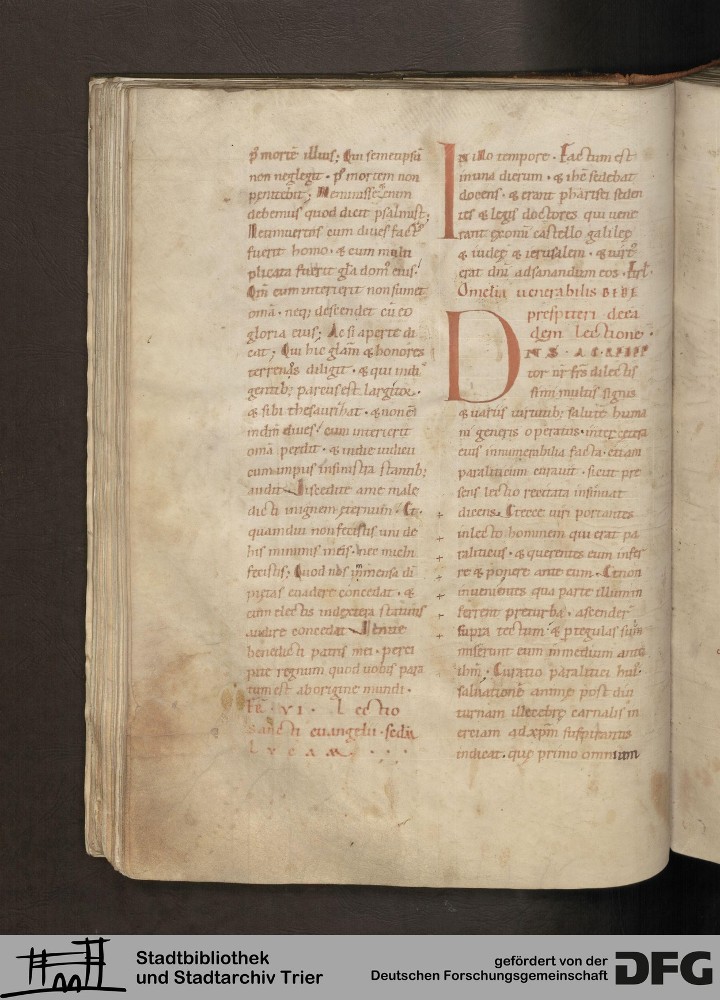 p̄ morte illius; Qui semetipsū
non neglegit. p̄ mortem non
penitebit; Meminisse enim
debemus quod dicit psalmist;
fuerit homo. & cum multi
plicata fuerit glā dom' eius.
Qm̄ cum interierit non sumet
omā. neq; descendet cū eo
gloria eius; Ac si aperte di
cat; Qui hic glām & honores
terrenos diligit. & qui indi
gentib; parcus est largitor.
& sibi thesaurizat. & non ē
in dm̄ dives; cum interierit
omā perdit. & in die iudicii
cum impiis in sinistra stantib;
audit. Discedite a me male
dicti in ignem eternum. Et
quamdiu non fecistis uni de
his minimis meis. nec michi
fecistis; Quod nos inmensa di
pietas euadere concedat. &
cum electis in dextera staturus
audire concedat. Uenite
benedicti patris mei. perci
pite regnum quod uobis para
tum est ab origine mundi.
FR. VI. Lectio
sancti euangelii. scdm̄
LUCAM
In illo tempore. Factum est
in una dierum. & ihc̄ sedebat
docens. & erant pharisei seden
tes & legis doctores qui uene
rant ex omi castello galileę
& iudeę & ierusalem. & uirt'
erat dnī ad sanandum eos. &rl.
Omelia uenerabilis BEDE
presbiteri de ea
dem lectione.
DNS. AC REDEMP
tor nr̄ frs̄ dilectis
simi multis signis
& uariis uirtutib; salutē huma
ni generis operatus. inter cetera
eius innumerabilia facta. etiam
paraliticum curauit. sicut pre
sens lectio recitata insinuat
dicens. Ecce uiri portantes
in lecto hominem qui erat pa
raliticus. & querentes eum infer
re & ponere ante eum. Et non
inuenientes qua parte illum in
ferrent pre turba. ascender̄
supra tectum. & p tegulas sum
miserunt eum in medium ante
ihm̄. Curatio paralitici hui'
saluationē animę post diu
turnam illecebrę carnalis in
erciam ad xpm̄ suspirantis
indicat. que primo omnium
Stadtbibliothek
und Stadtarchiv Trier
gefördert von der
Deutschen Forschungsgemeinschaft
DFG